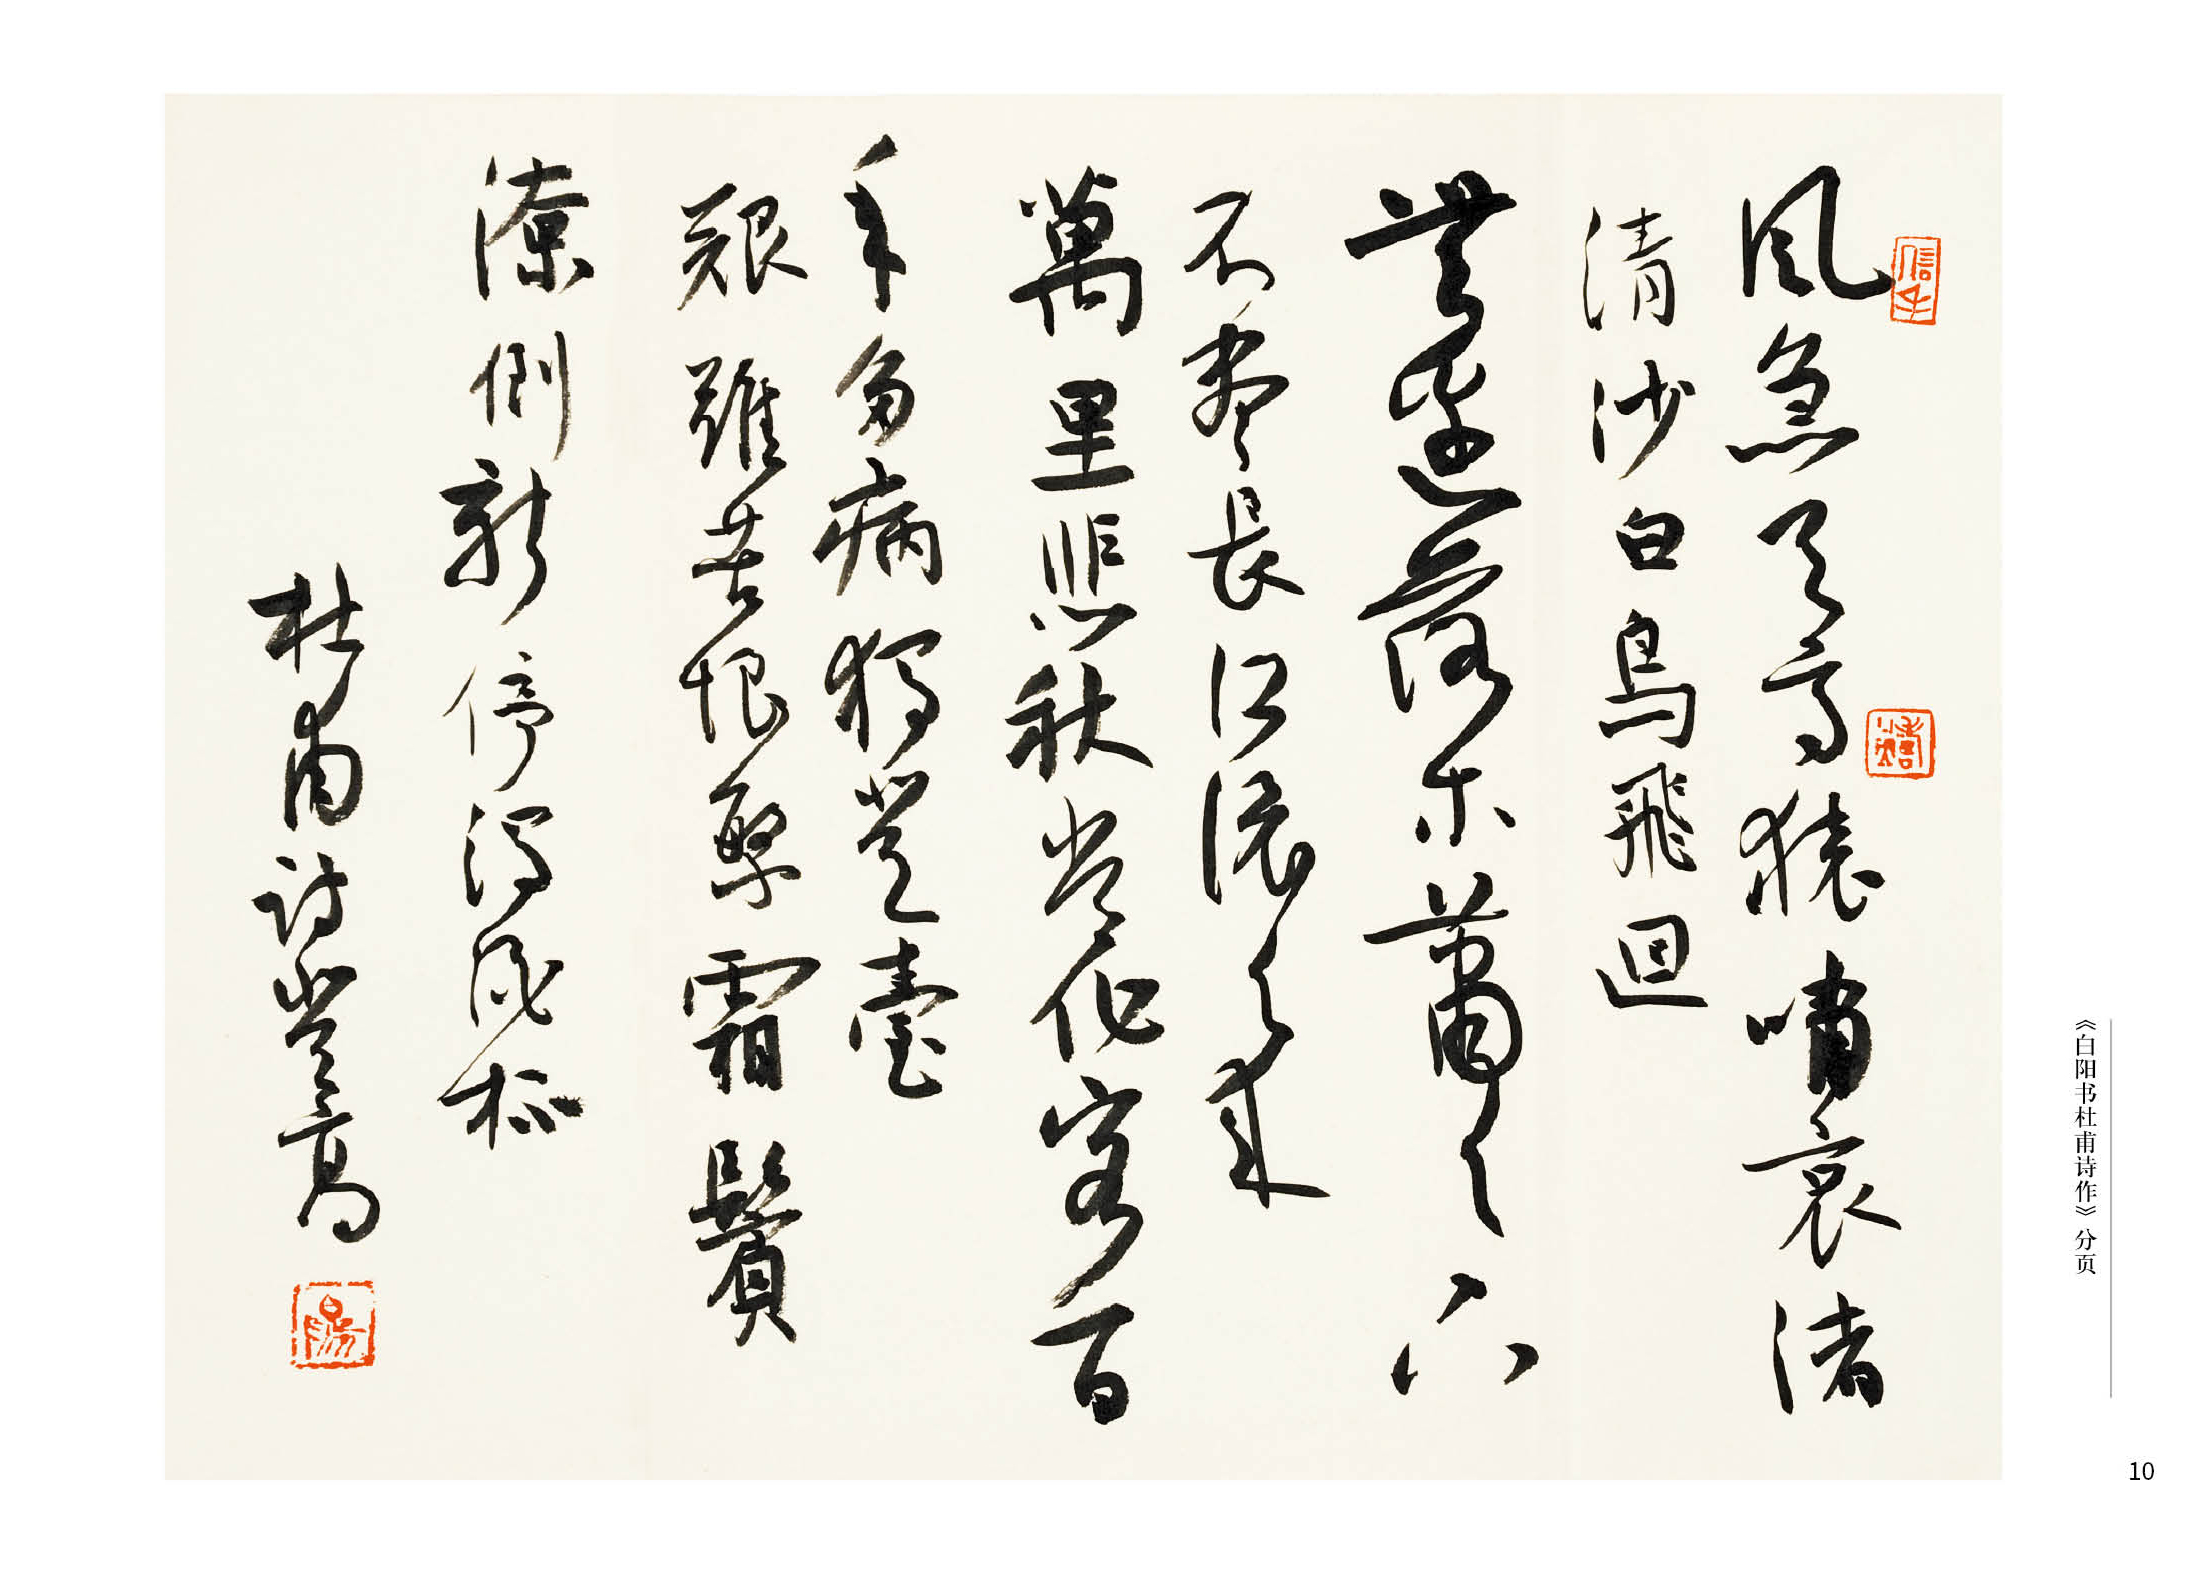 風急天高猿嘯哀渚
清沙白鳥飛迴
無邊落木蕭々下
不盡長江滾々來
萬里悲秋常作客百
年多病獨登臺
艱難苦恨繁霜鬢
潦倒新停濁酒杯
杜甫詩登高
信手
《白阳书杜甫诗作》分页
10